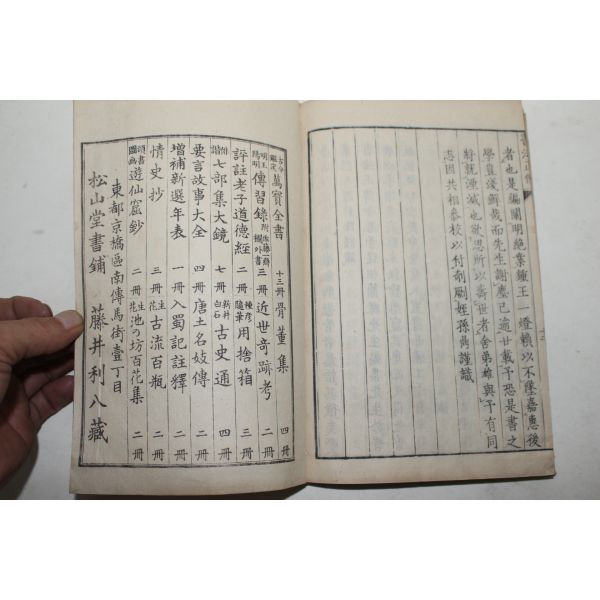 者也是編闡明絶業鍾王一燈賴以不墜嘉惠後
學豈淺鮮哉而先生謝塵已過廿載予恐是書之
將就湮滅也欲思所以壽世者舍弟雄與予有同
志因共相參校以付剞劂姪孫勇謹識
古今鑑定 萬寶全書 十三冊 骨董集 四冊
明王陽明 傳習錄 附佐藤一齋欄外書 三冊 近世奇跡考 二冊
評註老子道德經 二冊 種彦隨筆 用捨箱 三冊
俳諧 七部集大鏡 七冊 新井白石 古史通 四冊
要言故事大全 四冊 唐土名妓傳 二冊
增補新選年表 一冊 入蜀記註釋 二冊
情史抄 三冊 生花 古流百瓶 二冊
頭書圖画 遊仙窟鈔 二冊 生花 池の坊百花集 二冊
東都京橋區南傳馬街壹丁目
松山堂書鋪 藤井利八藏